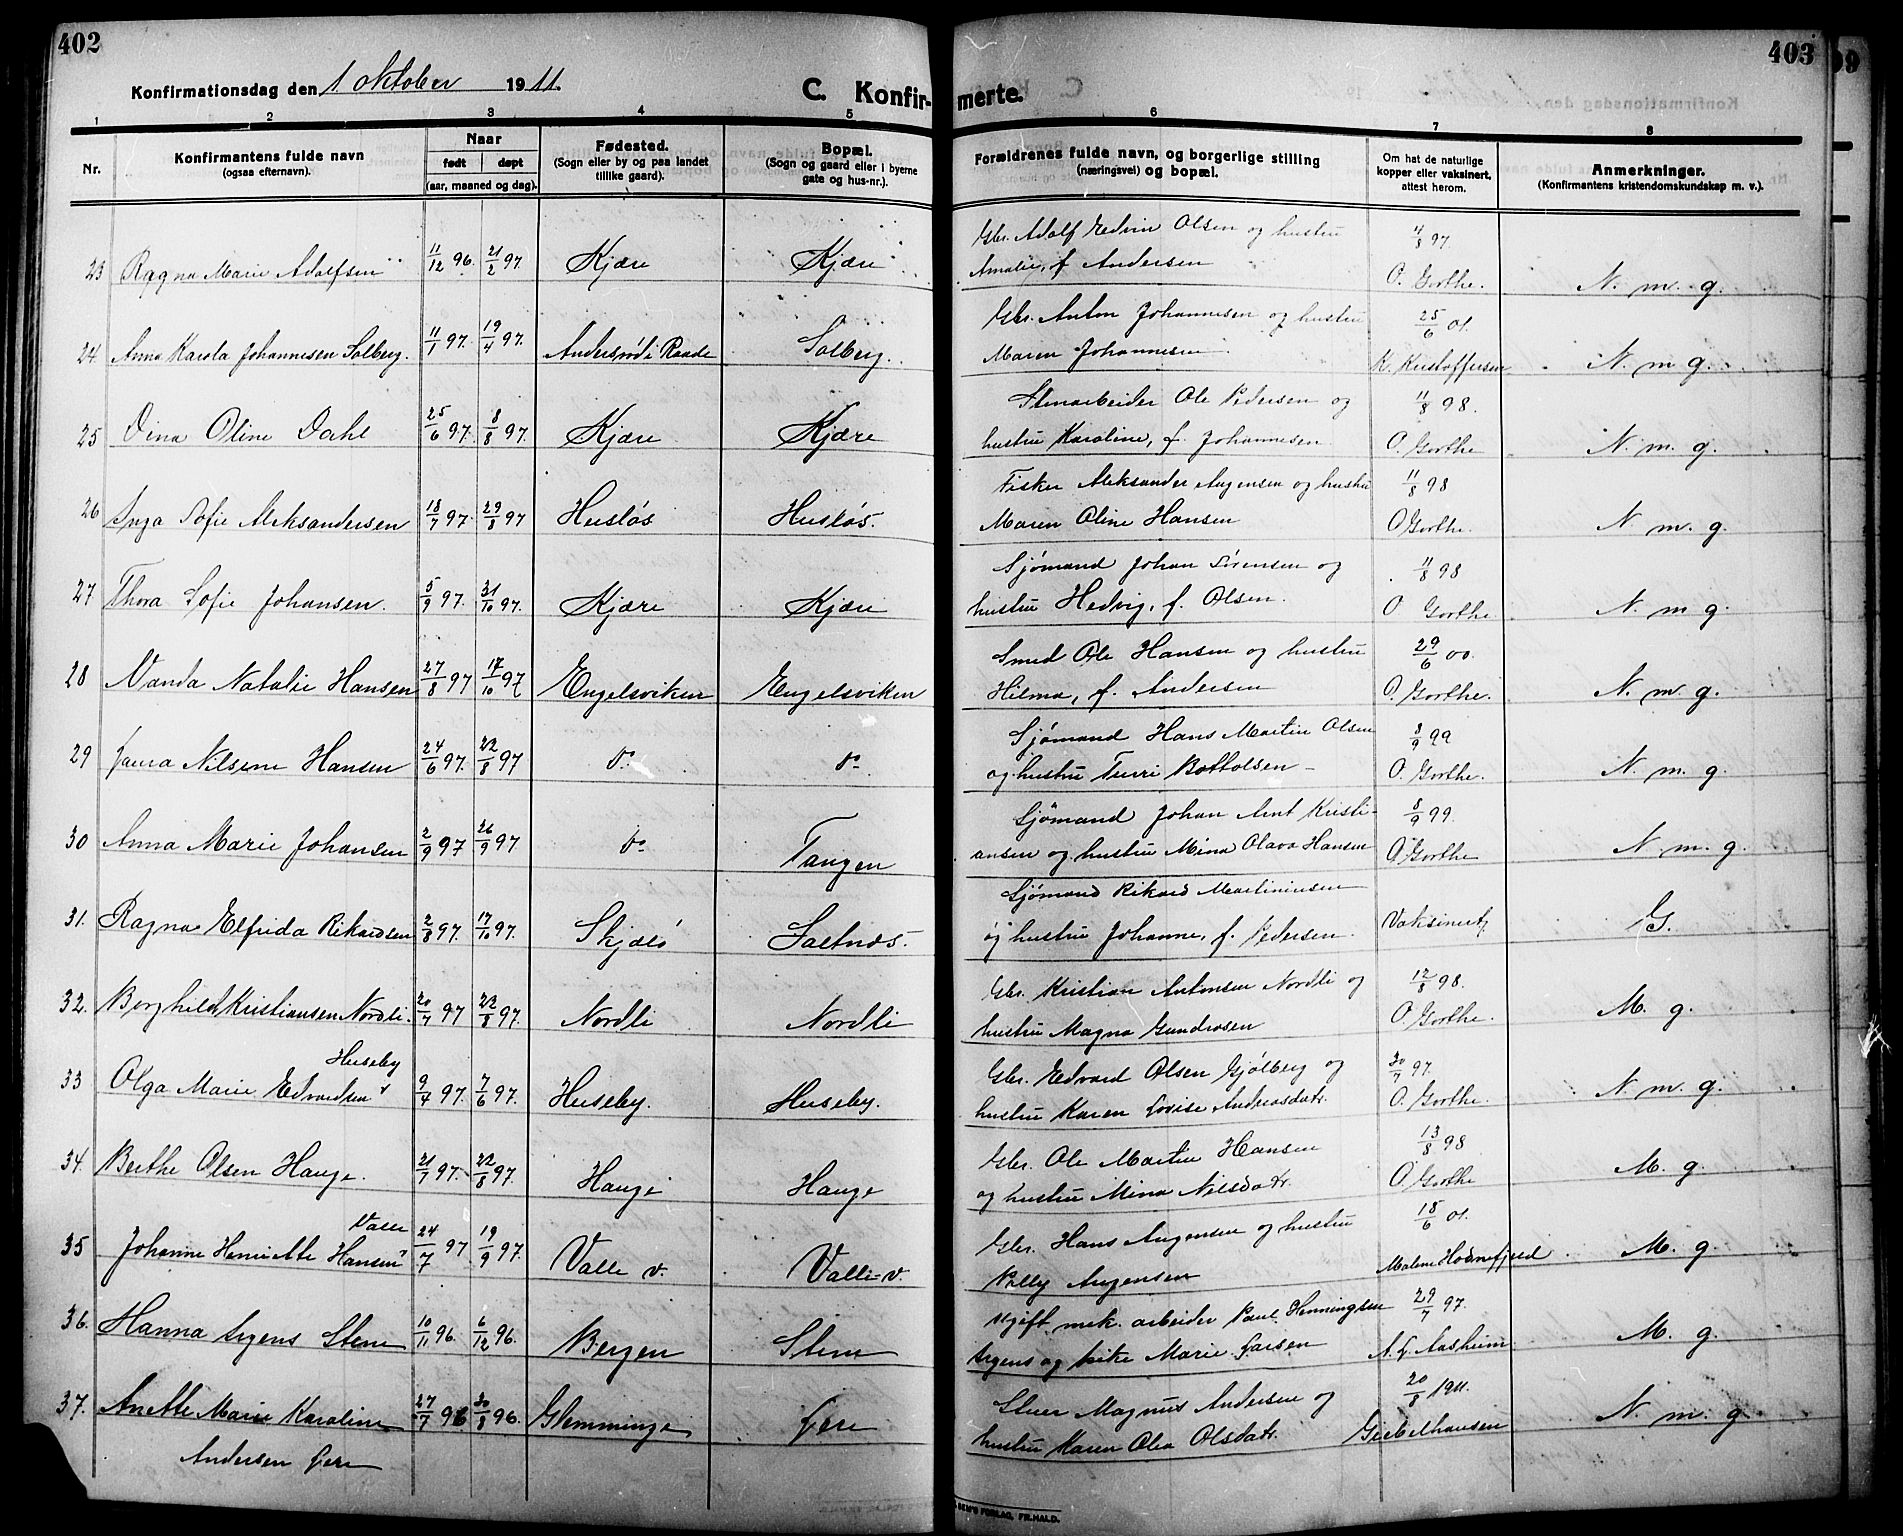 402
403
Konfirmationsdag den 1. oktober 1911.
C. Konfirmerte.
1 2 3 4 5 6 7 8
Nr.
Konfirmantens fulde navn
(ogsaa efternavn).
Naar
født døpt
(aar, maaned og dag).
Fødested.
(Sogn eller by og paa landet
tillike gaard).
Bopæl.
(Sogn og gaard eller i byerne
gate og hus-nr.).
Forældrenes fulde navn, og borgerlige stilling
(næringsvei) og bopæl.
Om hat de naturlige
kopper eller vaksinert,
attest herom.
Anmerkninger.
(Konfirmantens kristendomskundskap m. v.).
Gbr. Adolf Edvin Olsen og hustru 11/8 97.
23 Ragna Marie Adolfsen 11/12 96. 21/2 97. Kjære Kjære Amalie, f. Andersen O. Gorthe. N. m. g.
Gbr. Anton Johannesen og hustru 25/6 01.
24. Anna Karola Johannesen Solberg. 11/1 97. 19/4 97. Andersrød i Raade Solberg. Maren Johannesen K. Kristoffersen N. m g.
Stenarbeider Ole Pedersen og 11/8 98.
25 Dina Oline Dahl 25/6 97. 8/8 97. Kjære Kjære hustru Karoline, f. Johannesen O. Gorthe N. m. g.
Fisker Aleksander Augensen og hustru 11/8 98
26 Inga Sofie Aleksandersen 18/7 97. 29/8 97 Husløs Husløs. Maren Oline Hansen O Gorthe. N m. g.
Sjømand Johan Sørensen og 11/8 98
27 Thora Sofie Johansen. 5/9 97. 31/10 97. Kjære Kjære hustru Hedvig, f. Olsen. O Gorthe. N. m g.
Smed Ole Hansen og hustru 29/6 00.
28 Vanda Natalie Hansen 27/8 97 17/10 97 Engelsviken Engelsviken Hilma, f. Andersen O. Gorthe. N. m. g.
Sjømand Hans Martin Olsen 8/9 99
29 Laura Nilsene Hansen 24/6 97. 22/8 97 do do og hustru Turri Bottolsen O. Gorthe. N. m. g.
Sjømand Johan Arnt Kristi- 8/9 99.
30 Anna Marie Johansen 2/9 97 26/9 97 do Tangen ansen og hustru Mina Olava Hansen O Gorthe N m. g.
Sjømand Rikard Martiniusen
31. Ragna Elfrida Rikardsen 2/8 97. 17/10 97. Skjælø Saltnes. og hustru Johanne, f. Pedersen Vaksinert G.
Gbr. Kristian Antonsen Nordli og 12/8 98.
32. Borghild Kristiansen Nordli. 20/7 97 22/8 97. Nordli Nordli hustru Magna Gundrosen O. Gorthe. M. g.
Huseby Gbr. Edvard Olsen Gjølberg og 30/7 97.
33 Olga Marie Edvardsen 9/4 97. 7/6 97. Huseby. Huseby. hustru Karen Lovise Andreasdatr. O. Gorthe N. m. g.
Gbr. Ole Martin Hansen 13/8 98
34. Berthe Olsen Hauge. 21/7 97. 22/8 97. Hauge Hauge og hustru Mina Nilsdatr. O Gorthe M. g.
Valle Gbr. Hans Augensen og hustru 18/6 01.
35 Johanne Henriette Hansen 24/7 97 19/9 97. Valle v. Valle v. Milly Augensen Malene Hosnefjeld M. g.
ugift mek. arbeider Paul Henningsen 29/7 97.
36. Hanna Irgens Stene 10/11 96. 6/12 96. Bergen Stene Irgens og pike Marie Larsen A. L. Aasheim M. g.
Stuer Magnus Andersen og 20/8 1911.
37. Anette Marie Karoline 27/7 96 30/8 96. Glemminge Lere hustru Karen Olea Olsdatr. Giebelhausen N. m. g.
Andersen Lere
SEM'S FORLAG, FR.HALD.